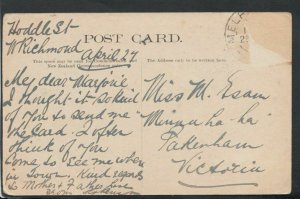 Hoddle St
W Richmond
April 27
POST CARD.
The Address only to be written here.
My dear Marjorie
I thought it so kind
of You to send me
the Card. I often
think of You
Come to See me when
in Town. Kind regards
to Mother & Father love
from
Miss M. Esam
"Minna-ha-ha"
Pakenham
Victoria
MELB